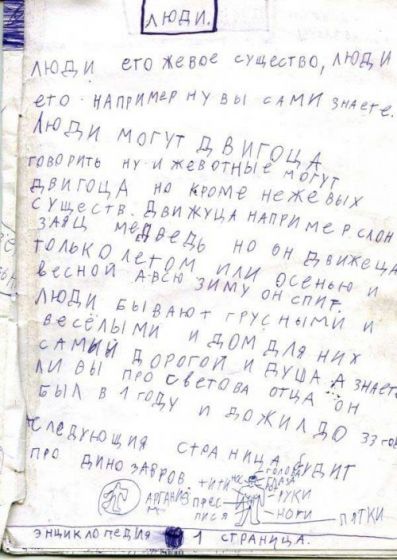 ЛЮДИ.
ЛЮДИ ЕТО ЖЕВОЕ СУЩЕСТВО, ЛЮДИ
ЕТО НАПРИМЕР НУ ВЫ САМИ ЗНАЕТЕ.
ЛЮДИ МОГУТ ДВИГОЦА
ГОВОРИТЬ НУ И ЖЕВОТНЫЕ МОГУТ
ДВИГОЦА НО КРОМЕ НЕЖЕВЫХ
СУЩЕСТВ. ДВИЖУЦА НАПРИМЕР СЛОН
ЗАЯЦ МЕДВЕДЬ НО ОН ДВИЖЕЦА
ТОЛЬКО ЛЕТОМ ИЛИ ОСЕНЬЮ И
ВЕСНОЙ А ВСЮ ЗИМУ ОН СПИТ.
ЛЮДИ БЫВАЮТ ГРУСНЫМИ И
ВЕСЁЛЫМИ И ДОМ ДЛЯ НИХ
САМЫЙ ДОРОГОЙ И ДУША А ЗНАЕТЕ
ЛИ ВЫ ПРО СВЕТОВА ОТЦА ОН
БЫЛ В 1 ГОДУ И ДОЖИЛ ДО 33 ГОД
СЛЕДУЮЩИЯ СТРАНИЦА БУДИТ
ПРО ДИНОЗАВРОВ.
ГОЛОВА
ГЛАЗА
РУКИ
НОГИ
ПЯТКИ
АРГАНИЗ
М
ПРЕС
ПИСЯ
ЭНЦИКЛОПЕДИЯ 1 СТРАНИЦА.